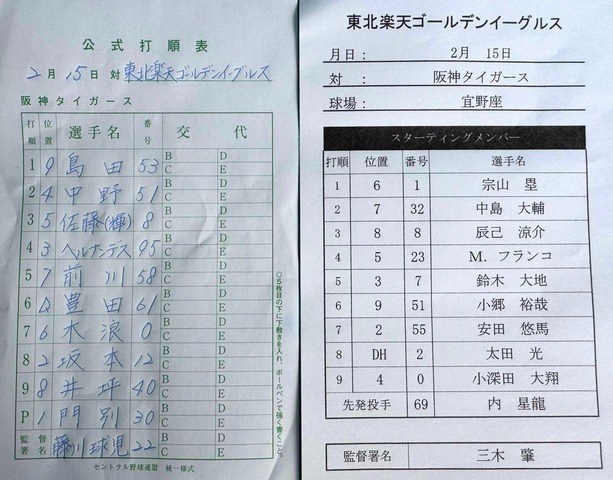 公式打順表
2月15日 対 東北楽天ゴールデンイーグルス
阪神タイガース
打順 位置 選手名 番号 交代
1 9 島田 53 B D C E
2 4 中野 51 B D C E
3 5 佐藤(輝) 8 B D C E
4 3 ヘルナンデス 95 B D C E
5 7 前川 58 B D C E
6 D 豊田 61 B D C E
7 6 木浪 0 B D C E
8 2 坂本 12 B D C E
9 8 井坪 40 B D C E
P 1 門別 30 B D C E
監督署名 藤川球児 22 B D C E
セントラル野球連盟 統一様式
◎5枚目の下に下敷きを入れ、ボールペンで強く書くこと。
東北楽天ゴールデンイーグルス
月日: 2月 15日
対: 阪神タイガース
球場: 宜野座
スターティングメンバー
打順 位置 番号 選手名
1 6 1 宗山 塁
2 7 32 中島 大輔
3 8 8 辰己 涼介
4 5 23 M. フランコ
5 3 7 鈴木 大地
6 9 51 小郷 裕哉
7 2 55 安田 悠馬
8 DH 2 太田 光
9 4 0 小深田 大翔
先発投手 69 内 星龍
監督署名 三木 肇